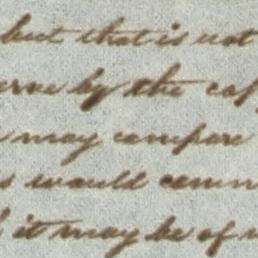 but that is not
erve by the cop
may compare
s would comm
it may be of